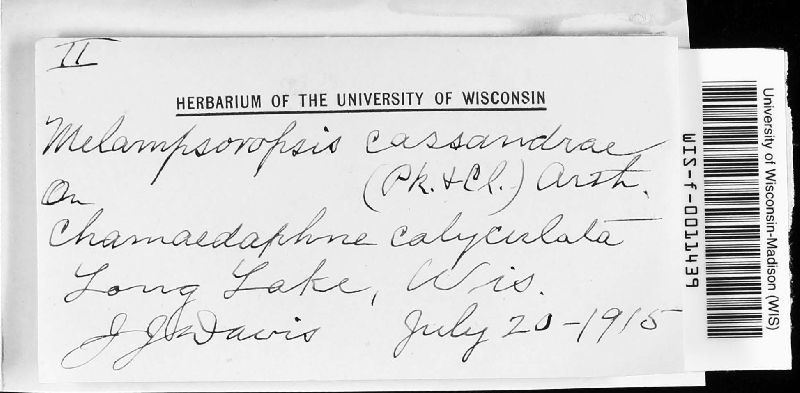 II
HERBARIUM OF THE UNIVERSITY OF WISCONSIN
Melampsoropsis cassandrae
(Pk. & Cl.) Arth.
on
Chamaedaphne calyculata
Long Lake, Wis.
J J Davis July 20-1915
University of Wisconsin-Madison (WIS)
WIS-f-0011439